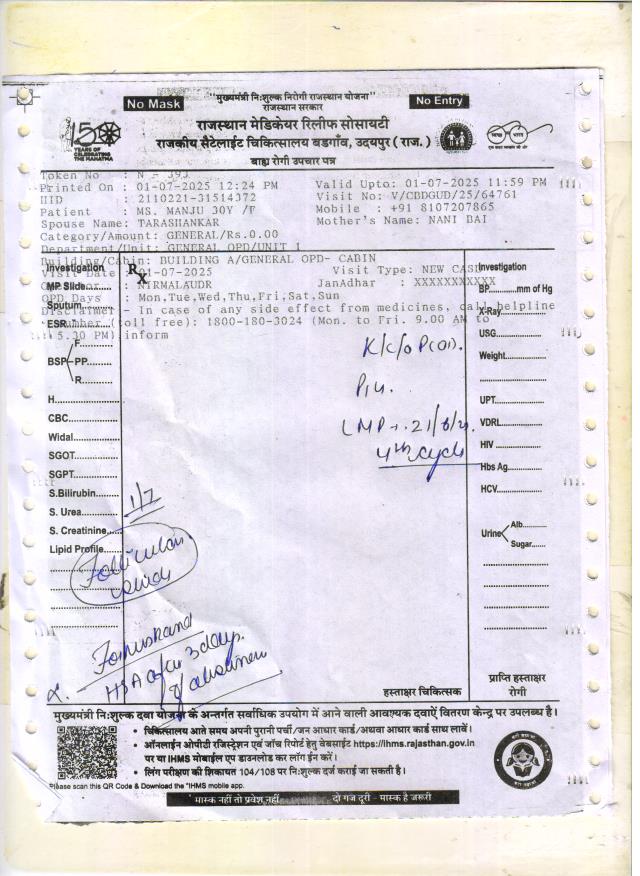 "मुख्यमंत्री निःशुल्क निरोगी राजस्थान योजना"
No Mask
राजस्थान सरकार
No Entry
राजस्थान मेडिकेयर रिलीफ सोसायटी
राजकीय सैटेलाईट चिकित्सालय बडगाँव, उदयपुर ( राज. )
बाह्य रोगी उपचार पत्र
150 YEARS OF CELEBRATING THE MAHATMA
Token No : N - 393
Printed On : 01-07-2025 12:24 PM Valid Upto: 01-07-2025 11:59 PM
HID : 2110221-31514372 Visit No: V/CBDGUD/25/64761
Patient : MS. MANJU 30Y /F Mobile : +91 8107207865
Spouse Name: TARASHANKAR Mother's Name: NANI BAI
Category/Amount: GENERAL/Rs.0.00
Department/Unit: GENERAL OPD/UNIT 1
Building/Cabin: BUILDING A/GENERAL OPD- CABIN
Visit Date : 01-07-2025 Visit Type: NEW CASE
NIRMALAUDR JanAadhar : XXXXXXXXXXX
OPD Days : Mon,Tue,Wed,Thu,Fri,Sat,Sun
Disclaimer - In case of any side effect from medicines, call helpline
number (toll free): 1800-180-3024 (Mon. to Fri. 9.00 AM to
5.30 PM) inform
Investigation
Rx
MP Slide
Sputum
ESR
BSP F
PP
R
H
CBC
Widal
SGOT
SGPT
S.Bilirubin
S. Urea
S. Creatinine
Lipid Profile
K/c/o P(01).
LMP 21/6/25
4th cycle
1/7
Follicular
study
HSA after 3 days
of abstinence
Investigation
BP mm of Hg
X-Ray
USG
Weight
UPT
VDRL
HIV
Hbs Ag
HCV
Urine Alb
Sugar
हस्ताक्षर चिकित्सक
प्राप्ति हस्ताक्षर
रोगी
मुख्यमंत्री निःशुल्क दवा योजना के अन्तर्गत सर्वाधिक उपयोग में आने वाली आवश्यक दवाऐं वितरण केन्द्र पर उपलब्ध है।
• चिकित्सालय आते समय अपनी पुरानी पर्ची/जन आधार कार्ड/अथवा आधार कार्ड साथ लावें।
• ऑनलाईन ओपीटी रजिस्ट्रेशन एवं जॉच रिपोर्ट हेतु वेबसाईट https://ihms.rajasthan.gov.in
पर या IHMS मोबाईल एप डाउनलोड कर लॉग ईन करें।
• लिंग परीक्षण की शिकायत 104/108 पर निःशुल्क दर्ज कराई जा सकती है।
Please scan this QR Code & Download the "IHMS mobile app.
मास्क नहीं तो प्रवेश नहीं दो गज दूरी - मास्क है जरूरी